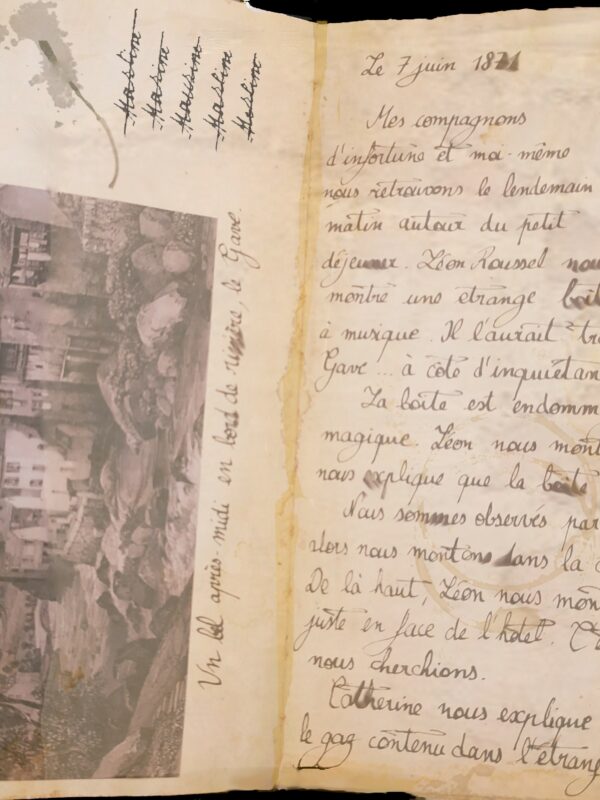 Un bel après-midi en bord de rivière, le Gave.
Le 7 juin 1871
Mes compagnons
d'infortune et moi-même
nous retrouvons le lendemain
matin autour du petit
déjeuner. Léon Roussel nou
montre une étrange boît
à musique. Il l'aurait tr
Gave... à côté d'inquiétan
La boîte est endomm
magique. Léon nous mont
nous explique que la boîte
Nous sommes observés par
alors nous montons dans la
De là haut, Léon nous mon
juste en face de l'hôtel.
nous cherchions.
Catherine nous explique
le gaz contenu dans l'étrang